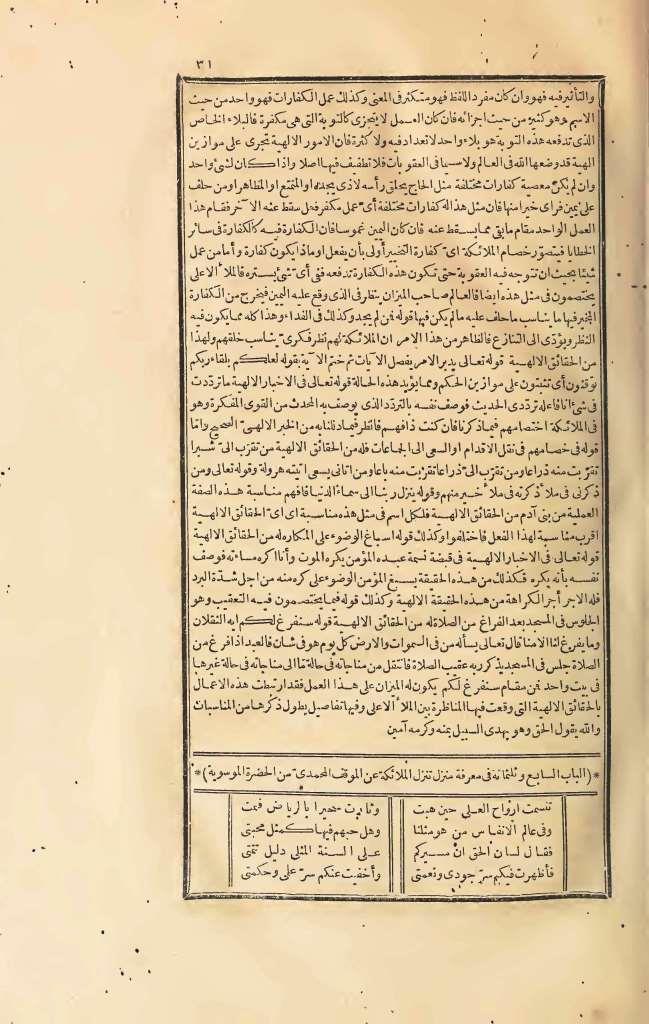 ٣١
والتأثير فيه فهو وان كان مفرد اللفظ فهو متكثر فى المعنى وكذلك عمل الكفارات فهو واحد من حيث
الاسم وهو كثير من حيث اجزائه فان كان العمل لا يتجزى كالتوبة التى هى مكفرة فالبلاء الخاص
الذى تدفعه هذه التوبة هو بلاء واحد لا تعداد فيه ولا كثرة فان الامور الالهية تجرى على موازين
الهية قد وضعها الله فى العالم ولا سيما فى العقوبات فلا تطفيف فيها اصلا واذا كان لشئ واحد
وان لم يكن معصية كفارات مختلفة مثل الحاج يحلق رأسه لاذى يجده او المتمتع او المظاهر او من حلف
على يمين فرأى خيرا منها فان مثل هذا له كفارات مختلفة أى عمل مكفر فعل سقط عنه الآخر فقام هذا
العمل الواحد مقام ما بقى مما يسقط عنه فان كان اليمين غموسا فان الكفارة فيه كالكفارة فى سائر
الخطايا فيتصور خصام الملائكة اى كفارة التخيير أولى بأن يفعل او ماذا يكون كفارة وأما من عمل
شيئا بحيث ان تتوجه فيه العقوبة حتى تكون هذه الكفارة تدفعه ففى أى شئ يستره فالملأ الاعلى
يختصمون فى مثل هذه ايضا فالعالم صاحب الميزان ينظر فى الذى وقع عليه اليمين فيخرج من الكفارة
المخير فيها ما يناسب ما حلف عليه ما لم يكن فيها قوله فمن لم يجد وكذلك فى الفداء وهذا كله مما يكون فيه
النظر ويؤدى الى التنازع فالظاهر من هذا الامر ان الملائكة لهم نظر فكرى يناسب خلقهم ولهذا
من الحقائق الالهية قوله تعالى يدبر الامر يفصل الآيات ثم ختم الآية بقوله لعلكم بلقاء ربكم
توقنون أى تثبتون على موازين الحكم ومما يؤيد هذه الحالة قوله تعالى فى الاخبار الالهية ما ترددت
فى شئ انا فاعله ترددى الحديث فوصف نفسه بالتردد الذى يوصف به المحدث من القوى المفكرة وهو
فى الملائكة اختصامهم فيما ذكرنا فان كنت ذا فهم فانظر فيما دللنا به من الخبر الالهى الصحيح واما
قوله فى خصامهم فى نقل الاقدام او السعى الى الجماعات فله من الحقائق الالهية من تقرب الى شبرا
تقربت منه ذراعا ومن تقرب الى ذراعا تقربت منه باعا ومن اتانى يسعى اتيته هرولة وقوله تعالى ومن
ذكرنى فى ملأ ذكرته فى ملأ خير منهم وقوله ينزل ربنا الى سماء الدنيا فافهم مناسبة هذه الصفة
العملية من بنى آدم من الحقائق الالهية فلكل اسم فى مثل هذه مناسبة اى اى الحقائق الالهية
اقرب مناسبة لهذا الفعل فاختلفوا وكذلك قوله اسباغ الوضوء على المكاره له من الحقائق الالهية
قوله تعالى فى الاخبار الالهية فى قبضة نسمة عبده المؤمن يكره الموت وأنا اكره مساءته فوصف
نفسه بأنه يكره فكذلك من هذه الحقيقة يسبغ المؤمن الوضوء على كره منه من اجل شدة البرد
فله الاجر أجر الكراهة من هذه الحقيقة الالهية وكذلك قوله فيما يختصمون فيه التعقيب وهو
الجلوس فى المسجد بعد الفراغ من الصلاة له من الحقائق الالهية قوله سنفرغ لكم ايه الثقلان
وما يفرغ لنا الا منا قال تعالى يسأله من فى السموات والارض كل يوم هو فى شان فالعبد اذا فرغ من
الصلاة جلس فى المسجد يذكر ربه عقيب الصلاة فانتقل من مناجاته فى حالة ما الى مناجاته فى حالة غيرها
فى بيت واحد فمن مقام سنفرغ لكم يكون له الميزان على هذا العمل فقد ارتبطت هذه الاعمال
بالحقائق الالهية التى وقعت فيها المناظرة بين الملأ الاعلى وفيها تفاصيل يطول ذكرها من المناسبات
والله يقول الحق وهو يهدى السبيل بمنه وكرمه آمين
*(الباب السابع وثلثمائة فى معرفة منزل تنزل الملائكة عن الموقف المحمدى من الحضرة الموسوية)*
تنسمت ارواح العلى حين هبت
وفى عالم الانفاس من هو مثلنا
وهل حبهم فيها كمثل محبتى
فقال لسان الحق ان مسيركم
على السنة المثلى دليل تتمتى
فأظهرت فيكم سر جودى ونعمتى
وأخفيت عنكم سر على وحكمتى